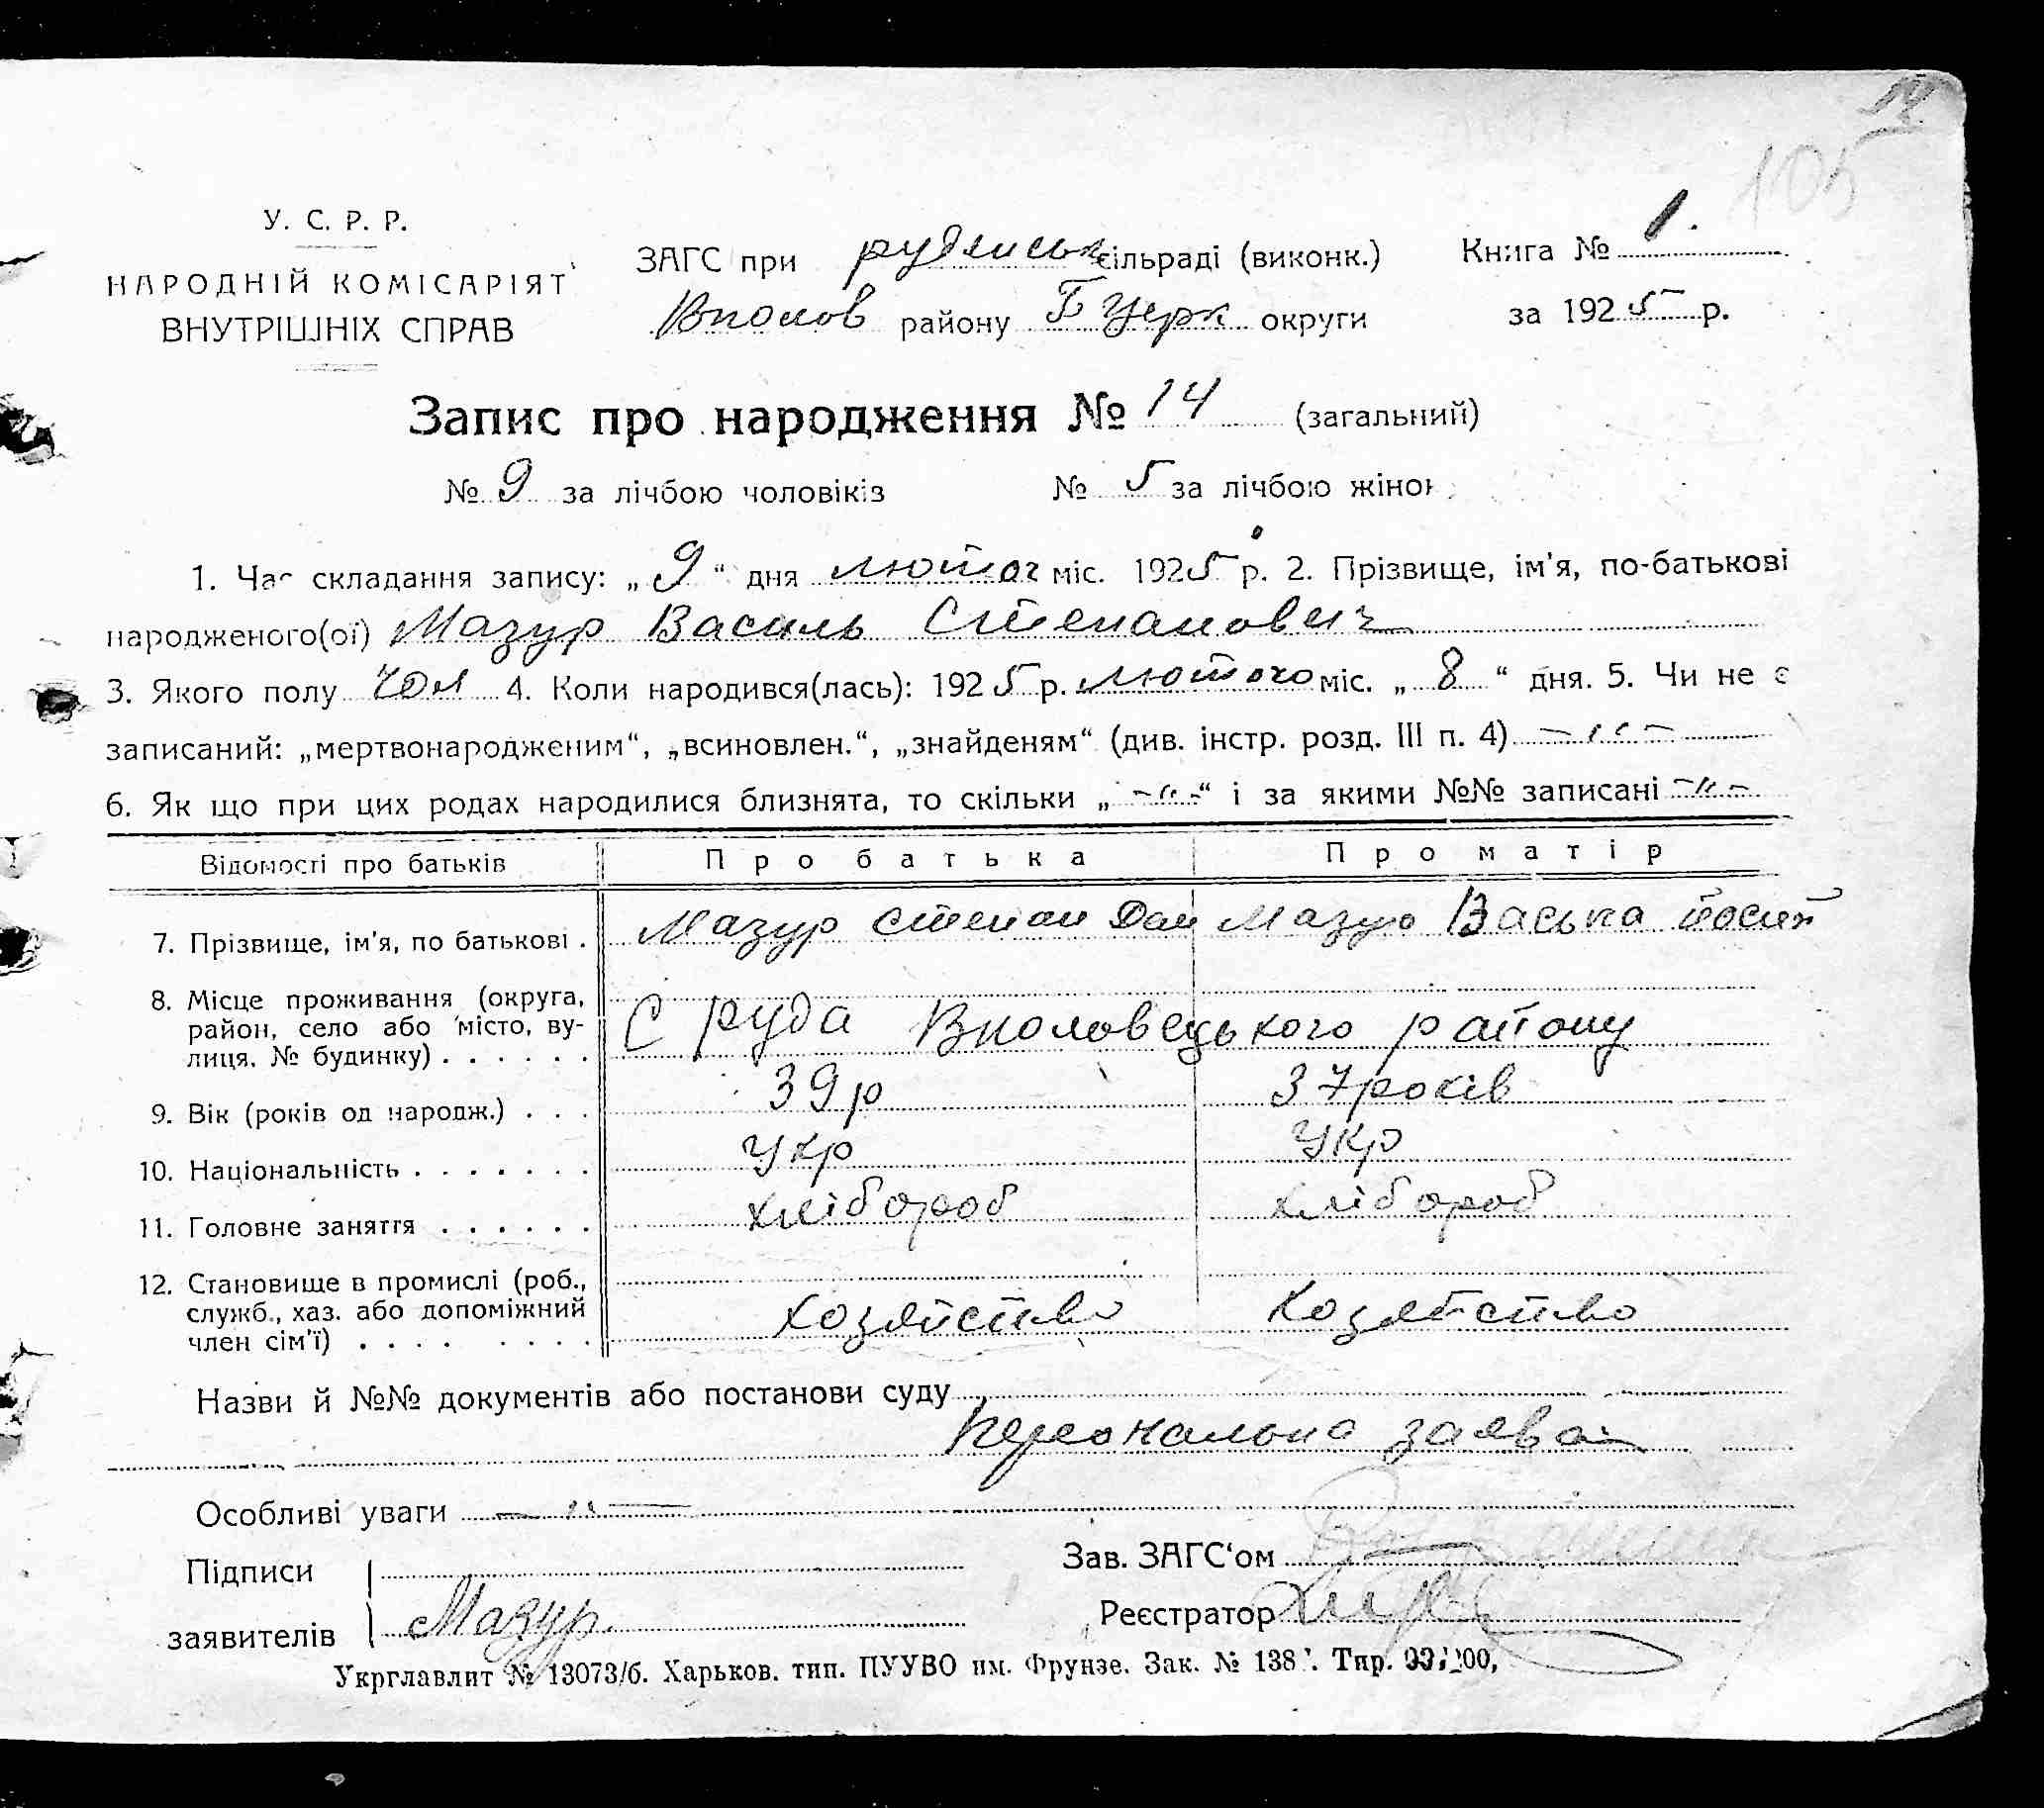 14
105
У. С. Р. Р.
НАРОДНІЙ КОМІСАРІЯТ
ВНУТРІШНІХ СПРАВ
ЗАГС при рудянськ сільраді (виконк.)
Вполов району Б Церк округи
Книга № 1.
за 1925 р.
Запис про народження № 14 (загальний)
№ 9 за лічбою чоловіків № 5 за лічбою жінок
1. Час складання запису: „ 9 “ дня лютого міс. 1925 р. 2. Прізвище, ім'я, по-батькові
народженого(ої) Мазур Василь Степанович
3. Якого полу Чол 4. Коли народився(лась): 1925 р. лютого міс. „ 8 “ дня. 5. Чи не є
записаний: „мертвонародженим“, „всиновлен.“, „знайденям“ (див. інстр. розд. III п. 4) — „ —
6. Як що при цих родах народилися близнята, то скільки „ -„- “ і за якими №№ записані -„-
Відомості про батьків Про батька Про матір
7. Прізвище, ім'я, по батькові . Мазур Степан Дан Мазур Васька йосип
8. Місце проживання (округа,
район, село або місто, ву-
лиця, № будинку) . . . . . . С руда Вполовецького району
9. Вік (років од народж.) . . . 39 р 37 років
10. Національність . . . . . . . Укр Укр
11. Головне заняття . . . . . . хлібороб хлібороб
12. Становище в промислі (роб.,
служб., хаз. або допоміжний
член сім'ї) . . . . . . . . Хозяйство Хозяйство
Назви й №№ документів або постанови суду
персональна заява
Особливі уваги — „ —
Підписи
заявителів Мазур
Зав. ЗАГС'ом
Реєстратор
Укрглавлит № 13073/б. Харьков. тип. ПУУВО им. Фрунзе. Зак. № 138 . Тир.